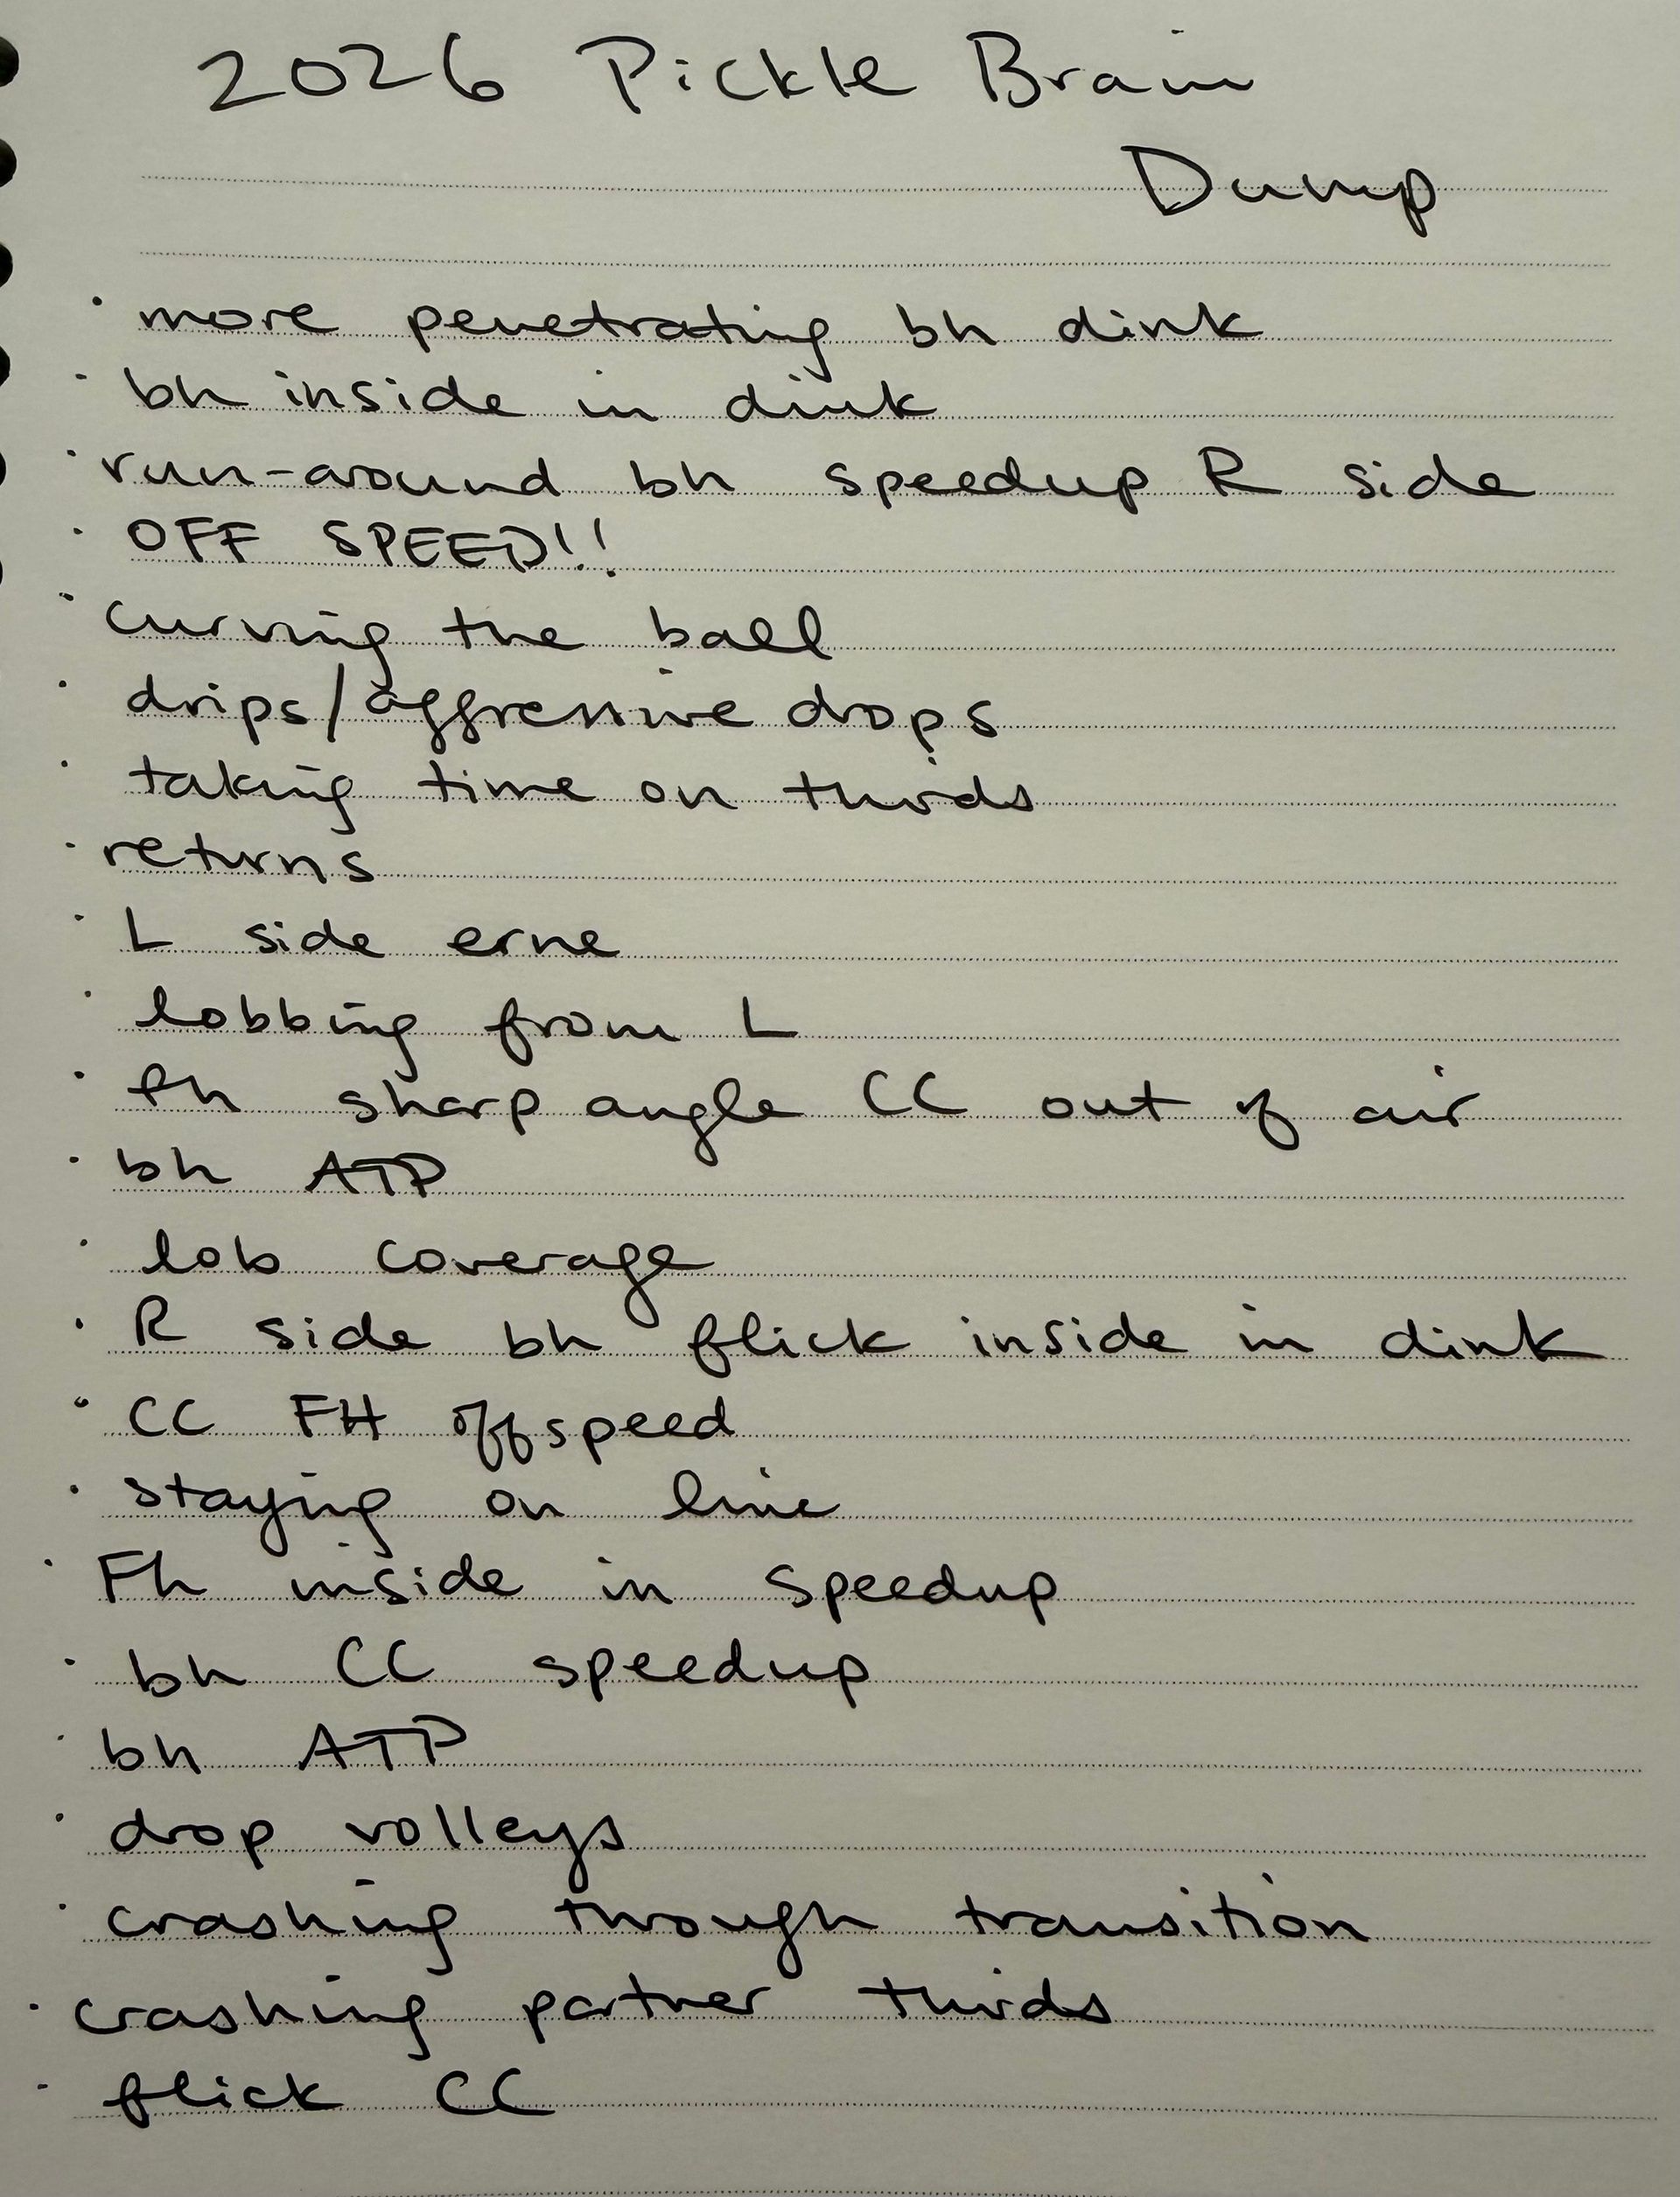 2026 Pickle Brain
Dump
· more penetrating bh dink
· bh inside in dink
· run-around bh speedup R side
· OFF SPEED!!
· curving the ball
· drips/aggressive drops
· taking time on thirds
· returns
· L side erne
· lobbing from L
· fh sharp angle CC out of air
· bh ATP
· lob coverage
· R side bh flick inside in dink
· CC FH offspeed
· staying on line
· Fh inside in speedup
· bh CC speedup
· bh ATP
· drop volleys
· crashing through transition
· crashing partner thirds
· flick CC